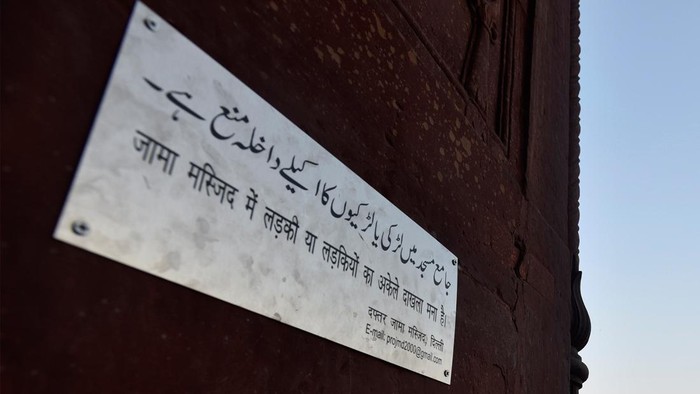 جامع مسجد میں لڑکی یا لڑکیوں کا اکیلے داخلہ منع ہے۔
जामा मस्जिद में लड़की या लड़कियों का अकेले दाखला मना है।
दफ्तर जामा मस्जिद, दिल्ली
E-mail: projmd2000@gmail.com